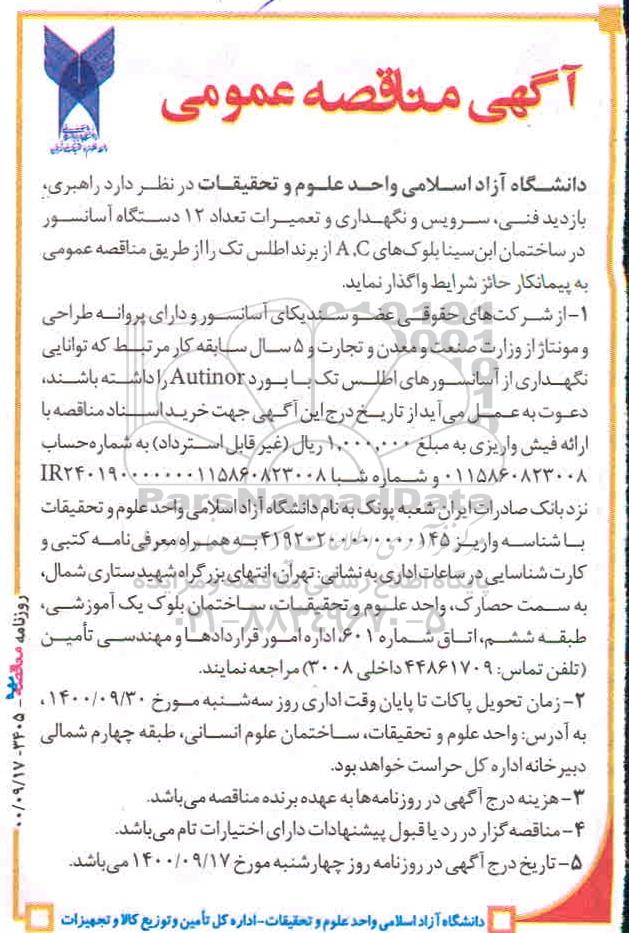 آگهی مناقصه عمومی
دانشگاه آزاد اسلامی واحد علوم و تحقیقات در نظر دارد راهبری،
بازدید فنی، سرویس و نگهداری و تعمیرات تعداد ۱۲ دستگاه آسانسور
در ساختمان ابن‌سینا بلوک‌های A,C از برند اطلس تک را از طریق مناقصه عمومی
به پیمانکار حائز شرایط واگذار نماید.
۱- از شرکت‌های حقوقی عضو سندیکای آسانسور و دارای پروانه طراحی
و مونتاژ از وزارت صنعت و معدن و تجارت و ۵ سال سابقه کار مرتبط که توانایی
نگهداری از آسانسورهای اطلس تک با بورد Autinor را داشته باشند،
دعوت به عمل می‌آید از تاریخ درج این آگهی جهت خرید اسناد مناقصه با
ارائه فیش واریزی به مبلغ ۱,۰۰۰,۰۰۰ ریال (غیر قابل استرداد) به شماره حساب
۰۱۱۵۸۶۰۸۲۳۰۰۸ و شماره شبا IR۲۴۰۱۹۰۰۰۰۰۰۰۱۱۵۸۶۰۸۲۳۰۰۸
نزد بانک صادرات ایران شعبه پونک به نام دانشگاه آزاد اسلامی واحد علوم و تحقیقات
با شناسه واریز ۴۱۹۲۰۲۰۰۰۰۰۰۰۰۰۱۴۵ به همراه معرفی‌نامه کتبی و
کارت شناسایی در ساعات اداری به نشانی: تهران، انتهای بزرگراه شهید ستاری شمال،
به سمت حصارک، واحد علوم و تحقیقات، ساختمان بلوک یک آموزشی،
طبقه ششم، اتاق شماره ۶۰۱، اداره امور قراردادها و مهندسی تأمین
(تلفن تماس: ۴۴۸۶۱۷۰۹ داخلی ۳۰۰۸) مراجعه نمایند.
۲- زمان تحویل پاکات تا پایان وقت اداری روز سه‌شنبه مورخ ۱۴۰۰/۰۹/۳۰،
به آدرس: واحد علوم و تحقیقات، ساختمان علوم انسانی، طبقه چهارم شمالی
دبیرخانه اداره کل حراست خواهد بود.
۳- هزینه درج آگهی در روزنامه‌ها به عهده برنده مناقصه می‌باشد.
۴- مناقصه‌گزار در رد یا قبول پیشنهادات دارای اختیارات تام می‌باشد.
۵- تاریخ درج آگهی در روزنامه روز چهارشنبه مورخ ۱۴۰۰/۰۹/۱۷ می‌باشد.
دانشگاه آزاد اسلامی واحد علوم و تحقیقات-اداره کل تأمین و توزیع کالا و تجهیزات
روزنامه مناقصه - ۳۴۰۵ - ۰۰/۰۹/۱۷
ParsNamadData
۰۲۱-۸۸۳۴۹۶۷۰-۵